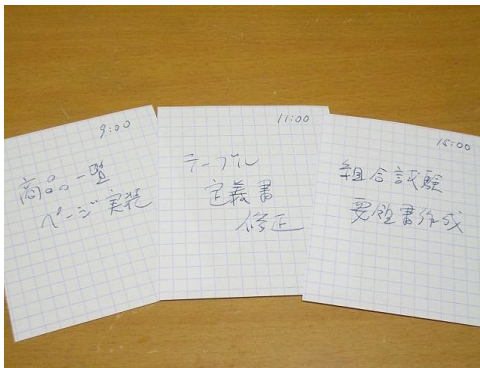 9:00
商品一覧
ページ実装
11:00
テーブル
定義書
修正
15:00
組合試験
要領書作成